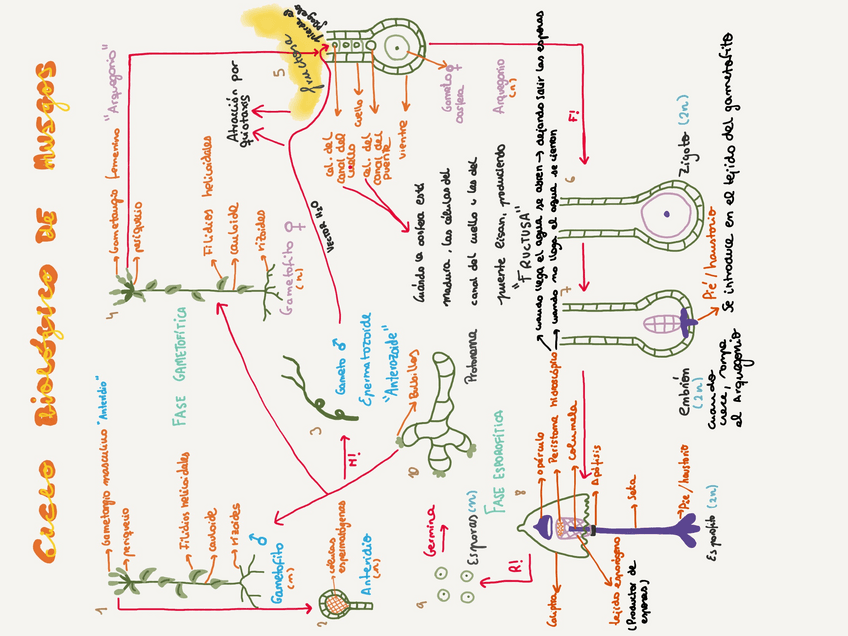 CICLO BIOLÓGICO DE MUSGOS
1
Gametangio masculino "Anteridio"
periquecio
Filidios helicoidales
cauloide
rizoides
Gametofito ♂
(n)
2
células
espermatógenas
Anteridio
(n)
M!
3
Gameto ♂
Epermatozoide
"Anterozoide"
FASE GAMETOFÍTICA
4
Gametangio femenino "Arquegonio"
periquecio
Filidios helicoidales
cauloide
rizoides
Gametofito ♀
(n)
VECTOR H2O
Atracción por
quiotaxis
5
fructosa
cel. del
canal del
cuello
cuello
cel. del
canal del
puente
vientre
Gameto ♀
oosfera
Arquegonio
(n)
Cuándo la oosfera está
madura, las células del
canal del cuello y las del
puente lisan, produciendo
"FRUCTUSA"
F!
6
Zigoto (2n)
7
Pié/haustorio
Se introduce en el tejido del gametofito
embrión
(2n)
cuando
crece, rompe
el Arquegonio
FASE ESPOROFÍTICA
8
opérculo
Peristoma higroscópico
cuando llega el agua se abren → dejando salir las esporas
cuando no llega el agua se cierran
columela
Apófisis
Seta
Pie/haustorio
Esporofito (2n)
Caliptra
tejido esporógeno
(Productor de
esporas)
R!
9
Esporas (n)
Germina
10
Bulbillos
Protonema